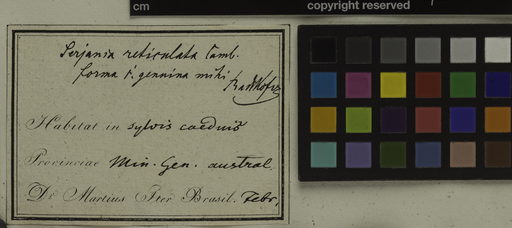 cm
copyright reserved
Serjania reticulata Camb.
forma 1. genuina mihi
Radlkofer
Habitat in sylvis caeduis
Provinciae Min. Gen. austral.
Dr Martius Iter Brasil. Febr.